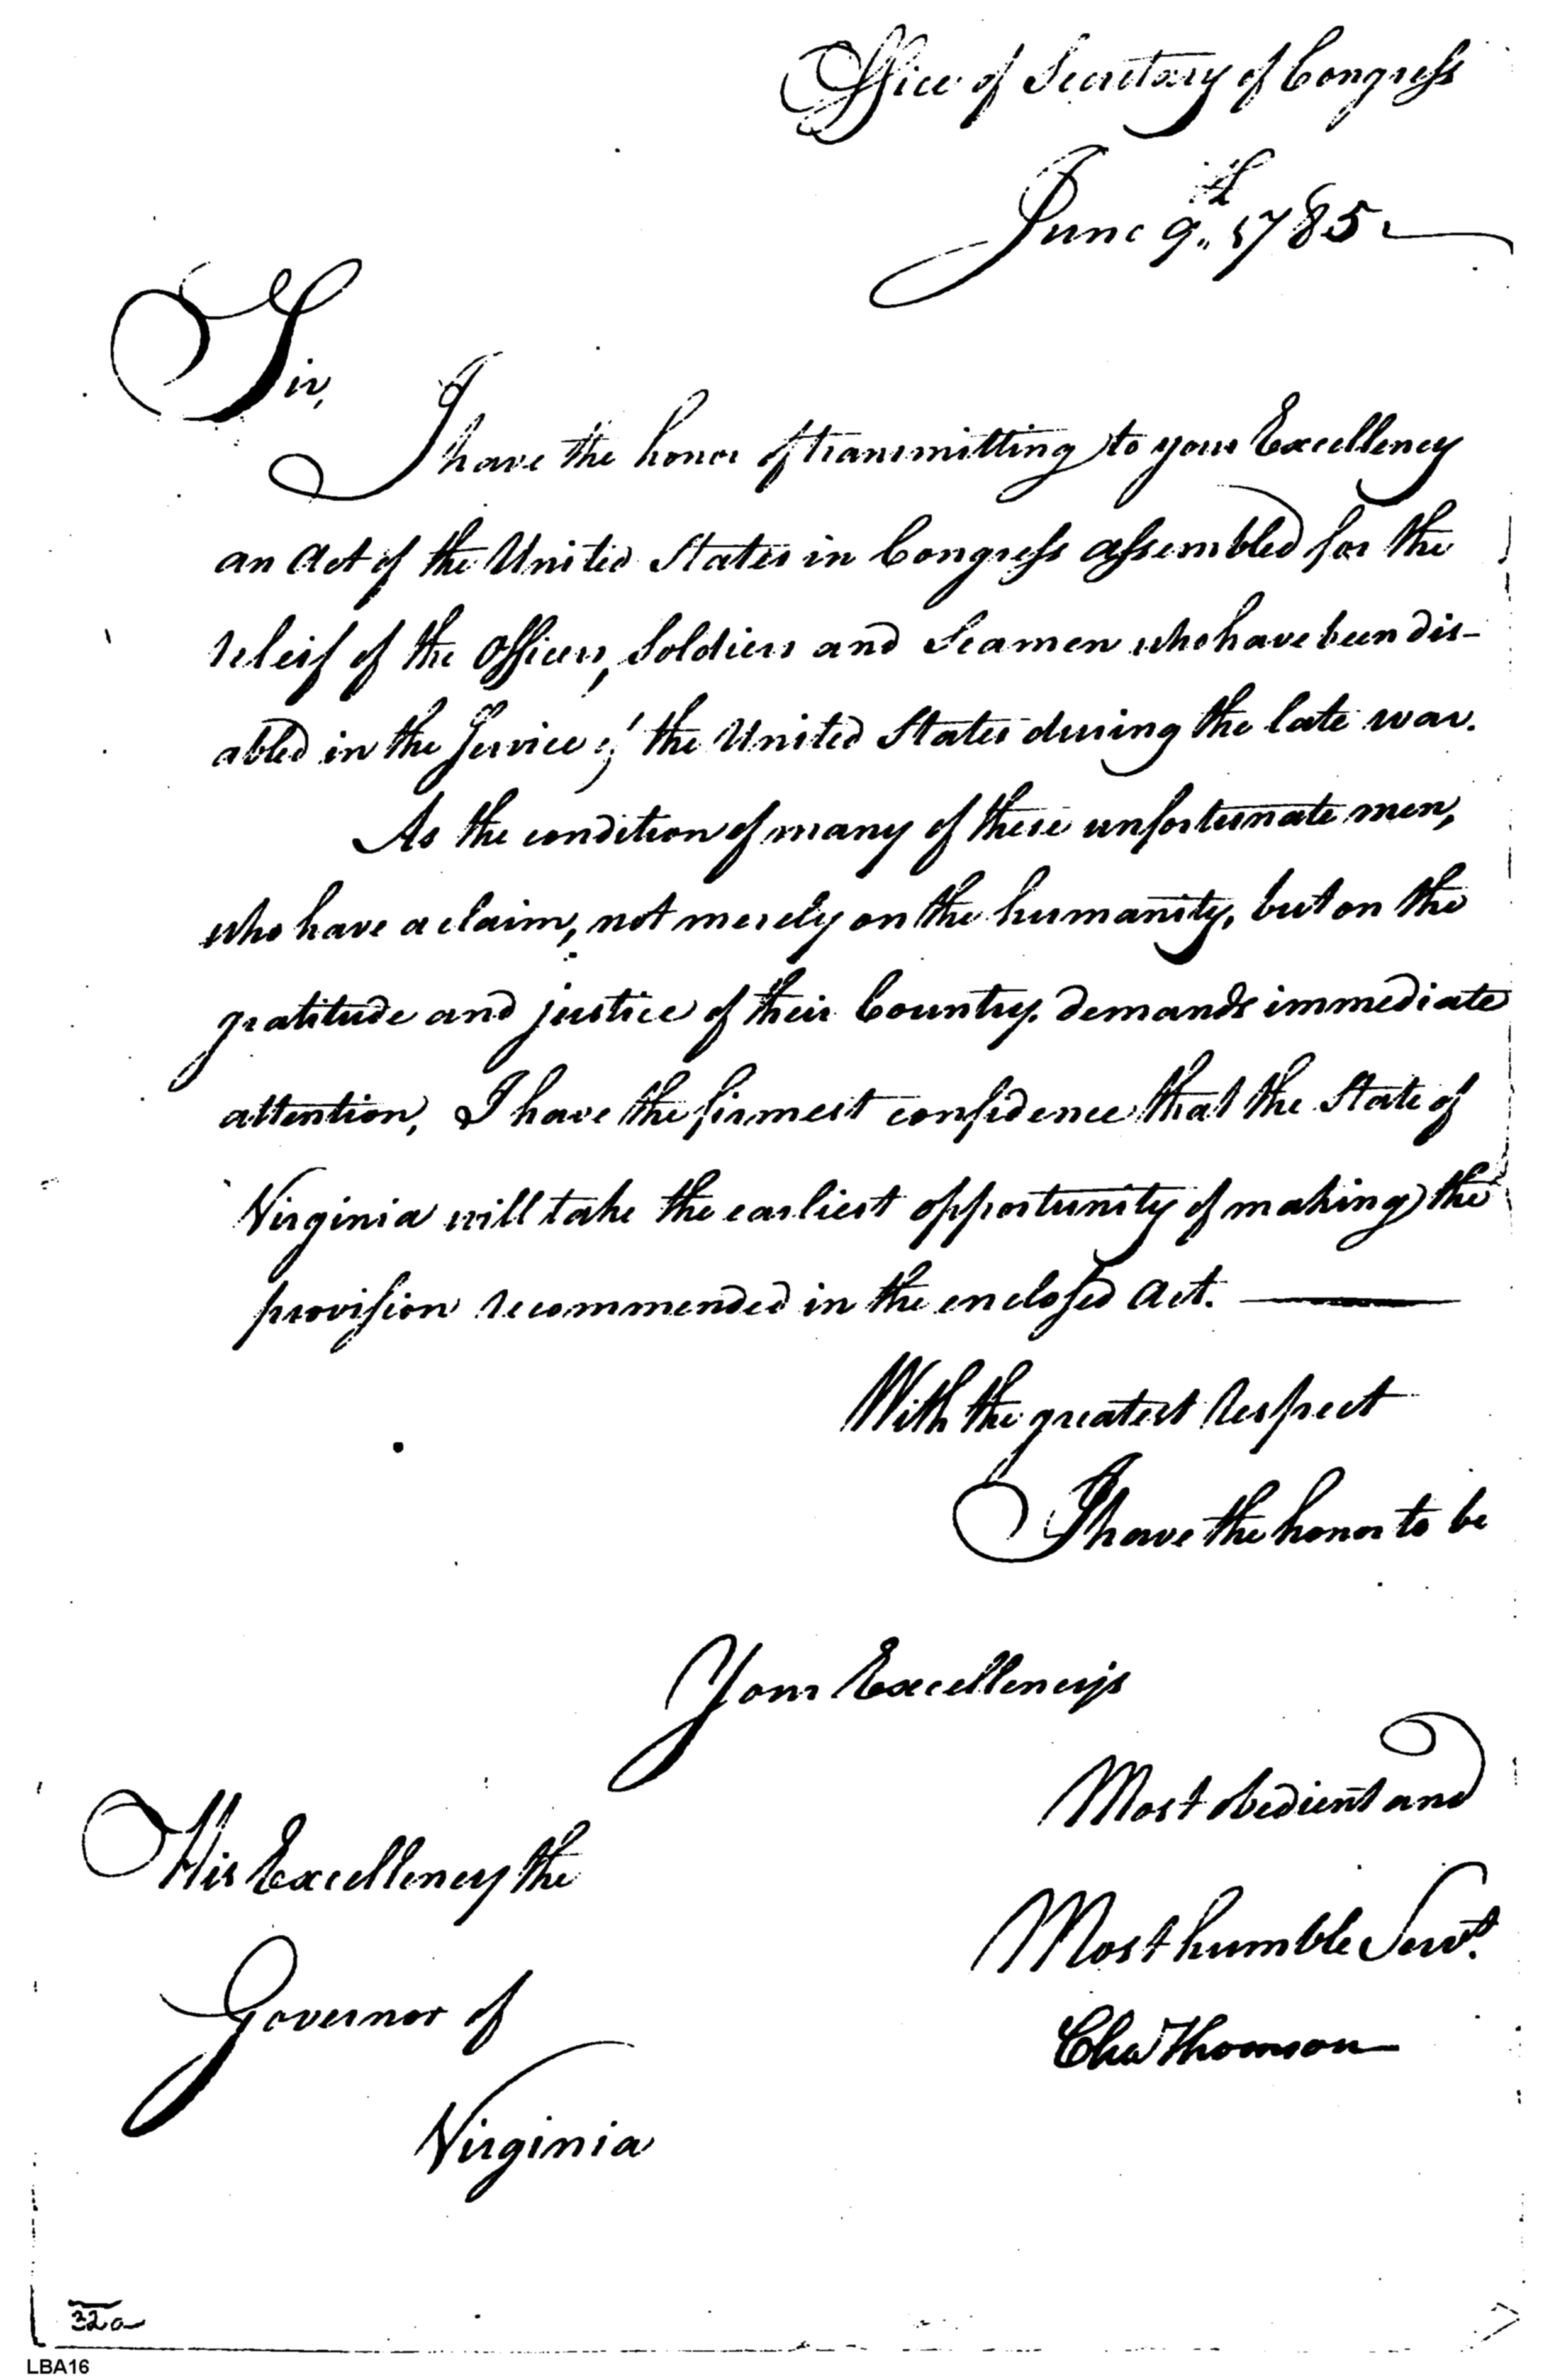 Office of Secretary of Congress
June 9th 1785
Sir,
I have the honor of transmitting to your Excellency
an Act of the United States in Congress assembled for the
releif of the Officers, Soldiers and Seamen who have been dis-
abled in the Service of the United States during the late war.
As the condition of many of these unfortunate men,
who have a claim, not merely on the humanity, but on the
gratitude and justice of their Country, demands immediate
attention, I have the firmest confidence that the State of
Virginia will take the earliest opportunity of making the
provision recommended in the enclosed Act.
With the greatest respect
I have the honor to be
Your Excellency's
Most obedient and
Most humble Servt.
Chas Thomson
His Excellency the
Governor of
Virginia
32a
LBA16